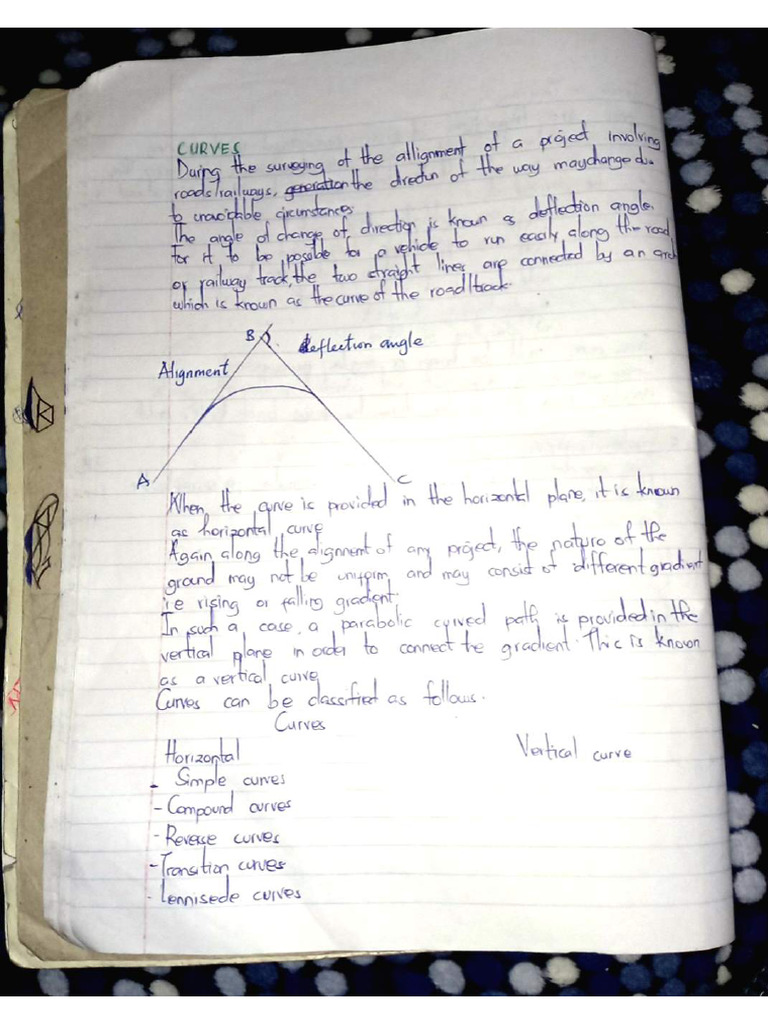 CURVES
During the surveying of the allignment of a project involving
roads/railways, generation the direction of the way may change du
to unavoidable circumstances.
The angle of change of direction is known as deflection angle.
For it to be possible for a vehicle to run easily along the road
or railway track, the two straight lines are connected by an arc
which is known as the curve of the road/track.
B deflection angle
Alignment
A
C
When the curve is provided in the horizontal plane, it is known
as horizontal curve
Again along the alignment of any project, the nature of the
ground may not be uniform and may consist of different gradient
i.e rising or falling gradient.
In such a case, a parabolic curved path is provided in the
vertical plane in order to connect the gradient. This is known
as a vertical curve
Curves can be classified as follows.
Curves
Horizontal Vertical curve
- Simple curves
- Compound curves
- Reverse curves
- Transition curves
- Lennisede curves